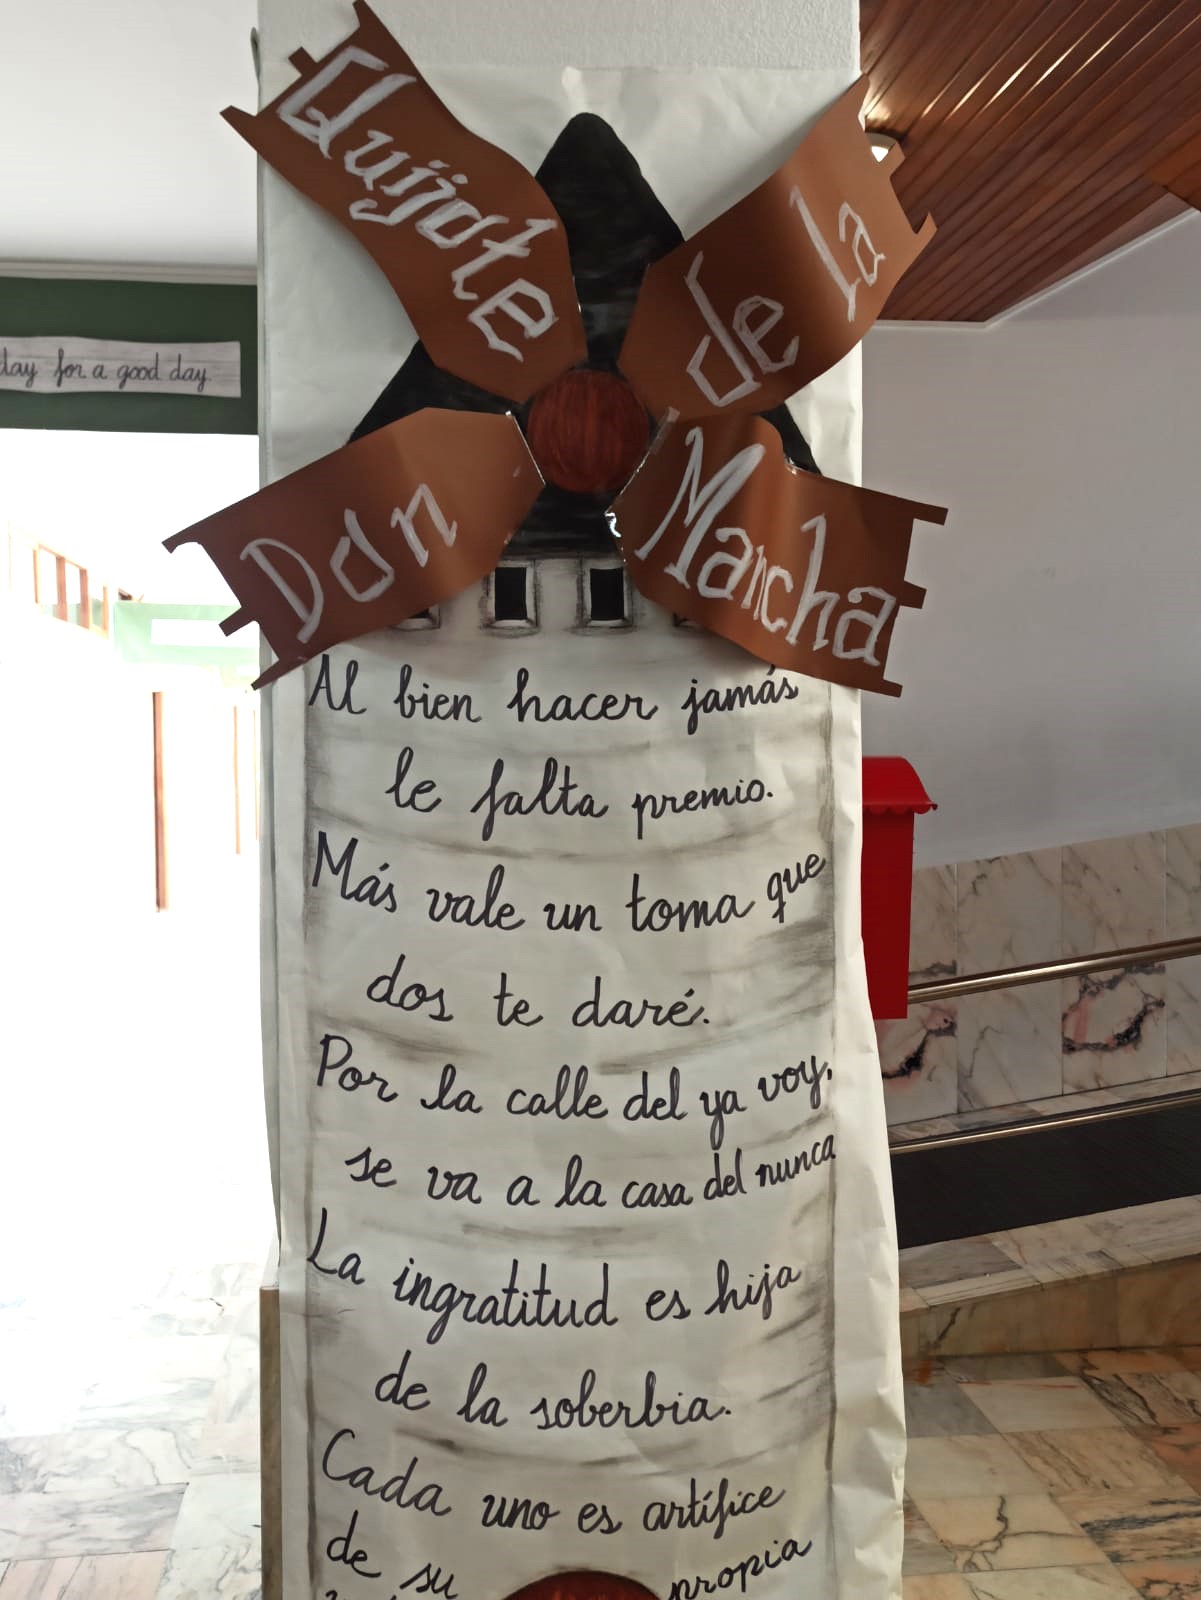 Don
Quijote
de la
Mancha
day for a good day
Al bien hacer jamás
le falta premio.
Más vale un toma que
dos te daré.
Por la calle del ya voy,
se va a la casa del nunca
La ingratitud es hija
de la soberbia.
Cada uno es artífice
de su propia